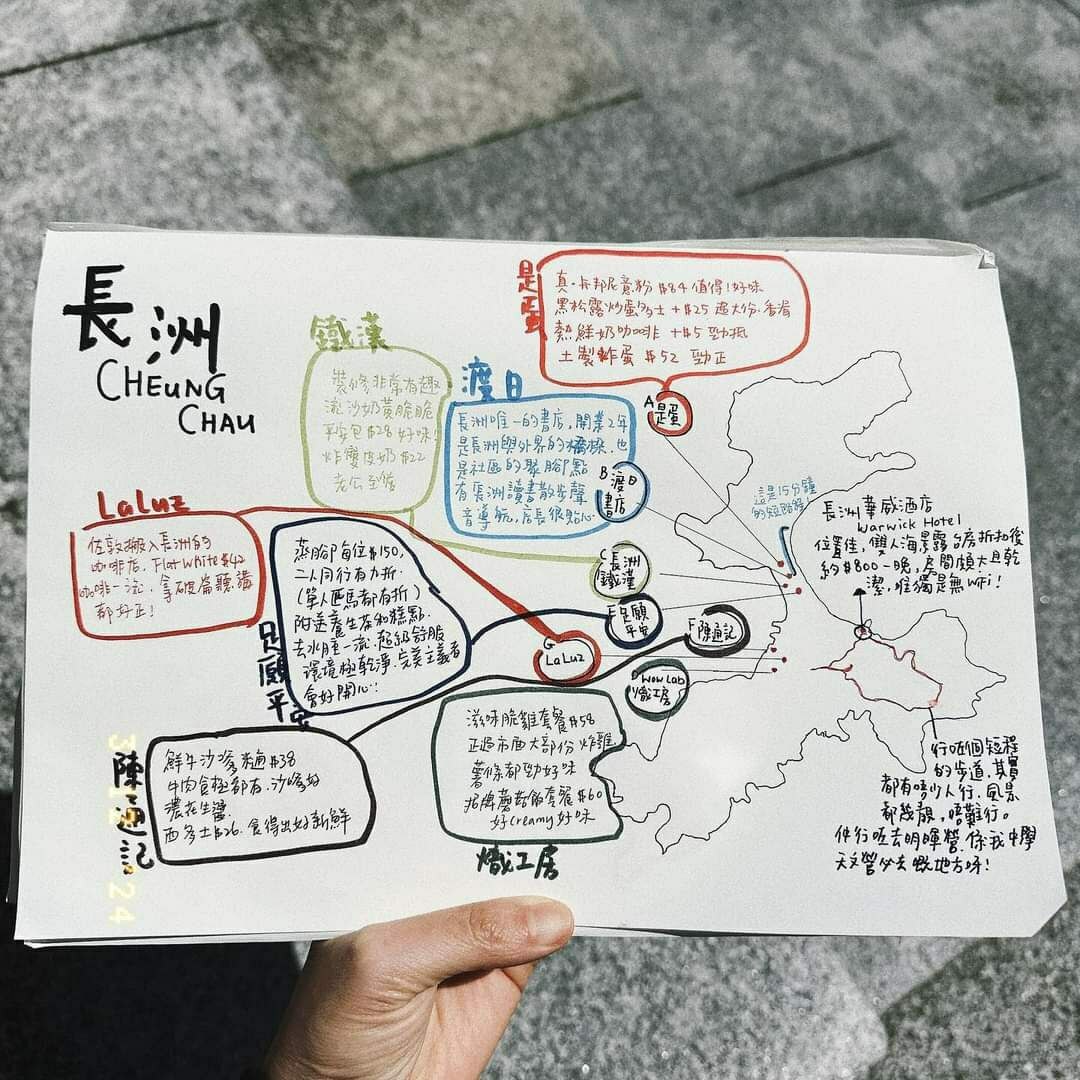 長洲
CHEUNG
CHAU
是蛋
真·卡邦尼意粉 $84 值得!好味
黑松露炒蛋多士 +$25 過大份·香眉
熱鮮奶咖啡 +$5 勁抵
土製炸蛋 $52 勁正
鐵漢
裝修非常有趣
流沙奶黃脆脆
平安包 $28 好味!
炸雙皮奶 $22
老公至愛
渡日
長洲唯一的書店，開業2年
是長洲與外界的橋樑，也
是社區的聚腳點
有長洲讀書散步聲
音導航，店長很貼心
LaLuz
佐敦搬入長洲的
咖啡店，Flat White $42
咖啡一流，拿破崙聽講
都好正!
足願平安
蒸腳每位$150，
二人同行有九折，
(單人匹馬都有折)
附送養生茶和糕點，
去水腫一流，超級舒服
環境極乾淨，完美主義者
會好開心!
陳通記
鮮牛沙嗲麵 $38
牛肉食極都有，沙嗲好
濃花生醬
西多士$26，食得出好新鮮
滋味脆雞套餐 $58
正過市面大部份炸雞，
薯條都勁好味
招牌蘑菇飯套餐 $60
好creamy 好味
熾工房
A 是蛋
B 渡日
書店
C 長洲
鐵漢
E 足願
平安
F 陳通記
G
LaLuz
D WOW Lab
熾工房
這是15分鐘
的短路程
長洲華威酒店
Warwick Hotel
位置佳，雙人海景露台房折扣後
約$800一晚，房間頗大且乾
潔，唯獨是無WiFi!
行咗個短程
的步道，其實
都有唔少人行，風景
都幾靚，唔難行。
仲行咗去明暉營，係我中學
天文營必去嘅地方呀!
3 24